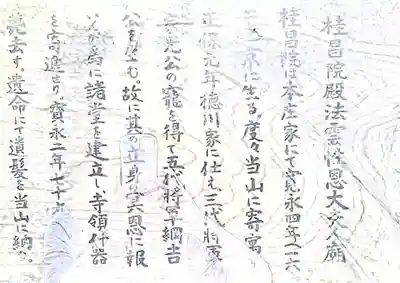 桂昌院殿法雲性恩大夫人廟
桂昌院は本庄家にて寛永四年(一六二
京に生る。度々当山に寄寓
正保元年徳川家に仕え三代将軍家
光公の寵を得て五代将軍綱吉
公を生む。故に其の立身の冥恩に報
いが為に諸堂を建立し、寺領什器
を寄進せり。寶永二年七十
薨去す。遺命にて遺髪を当山に納む。